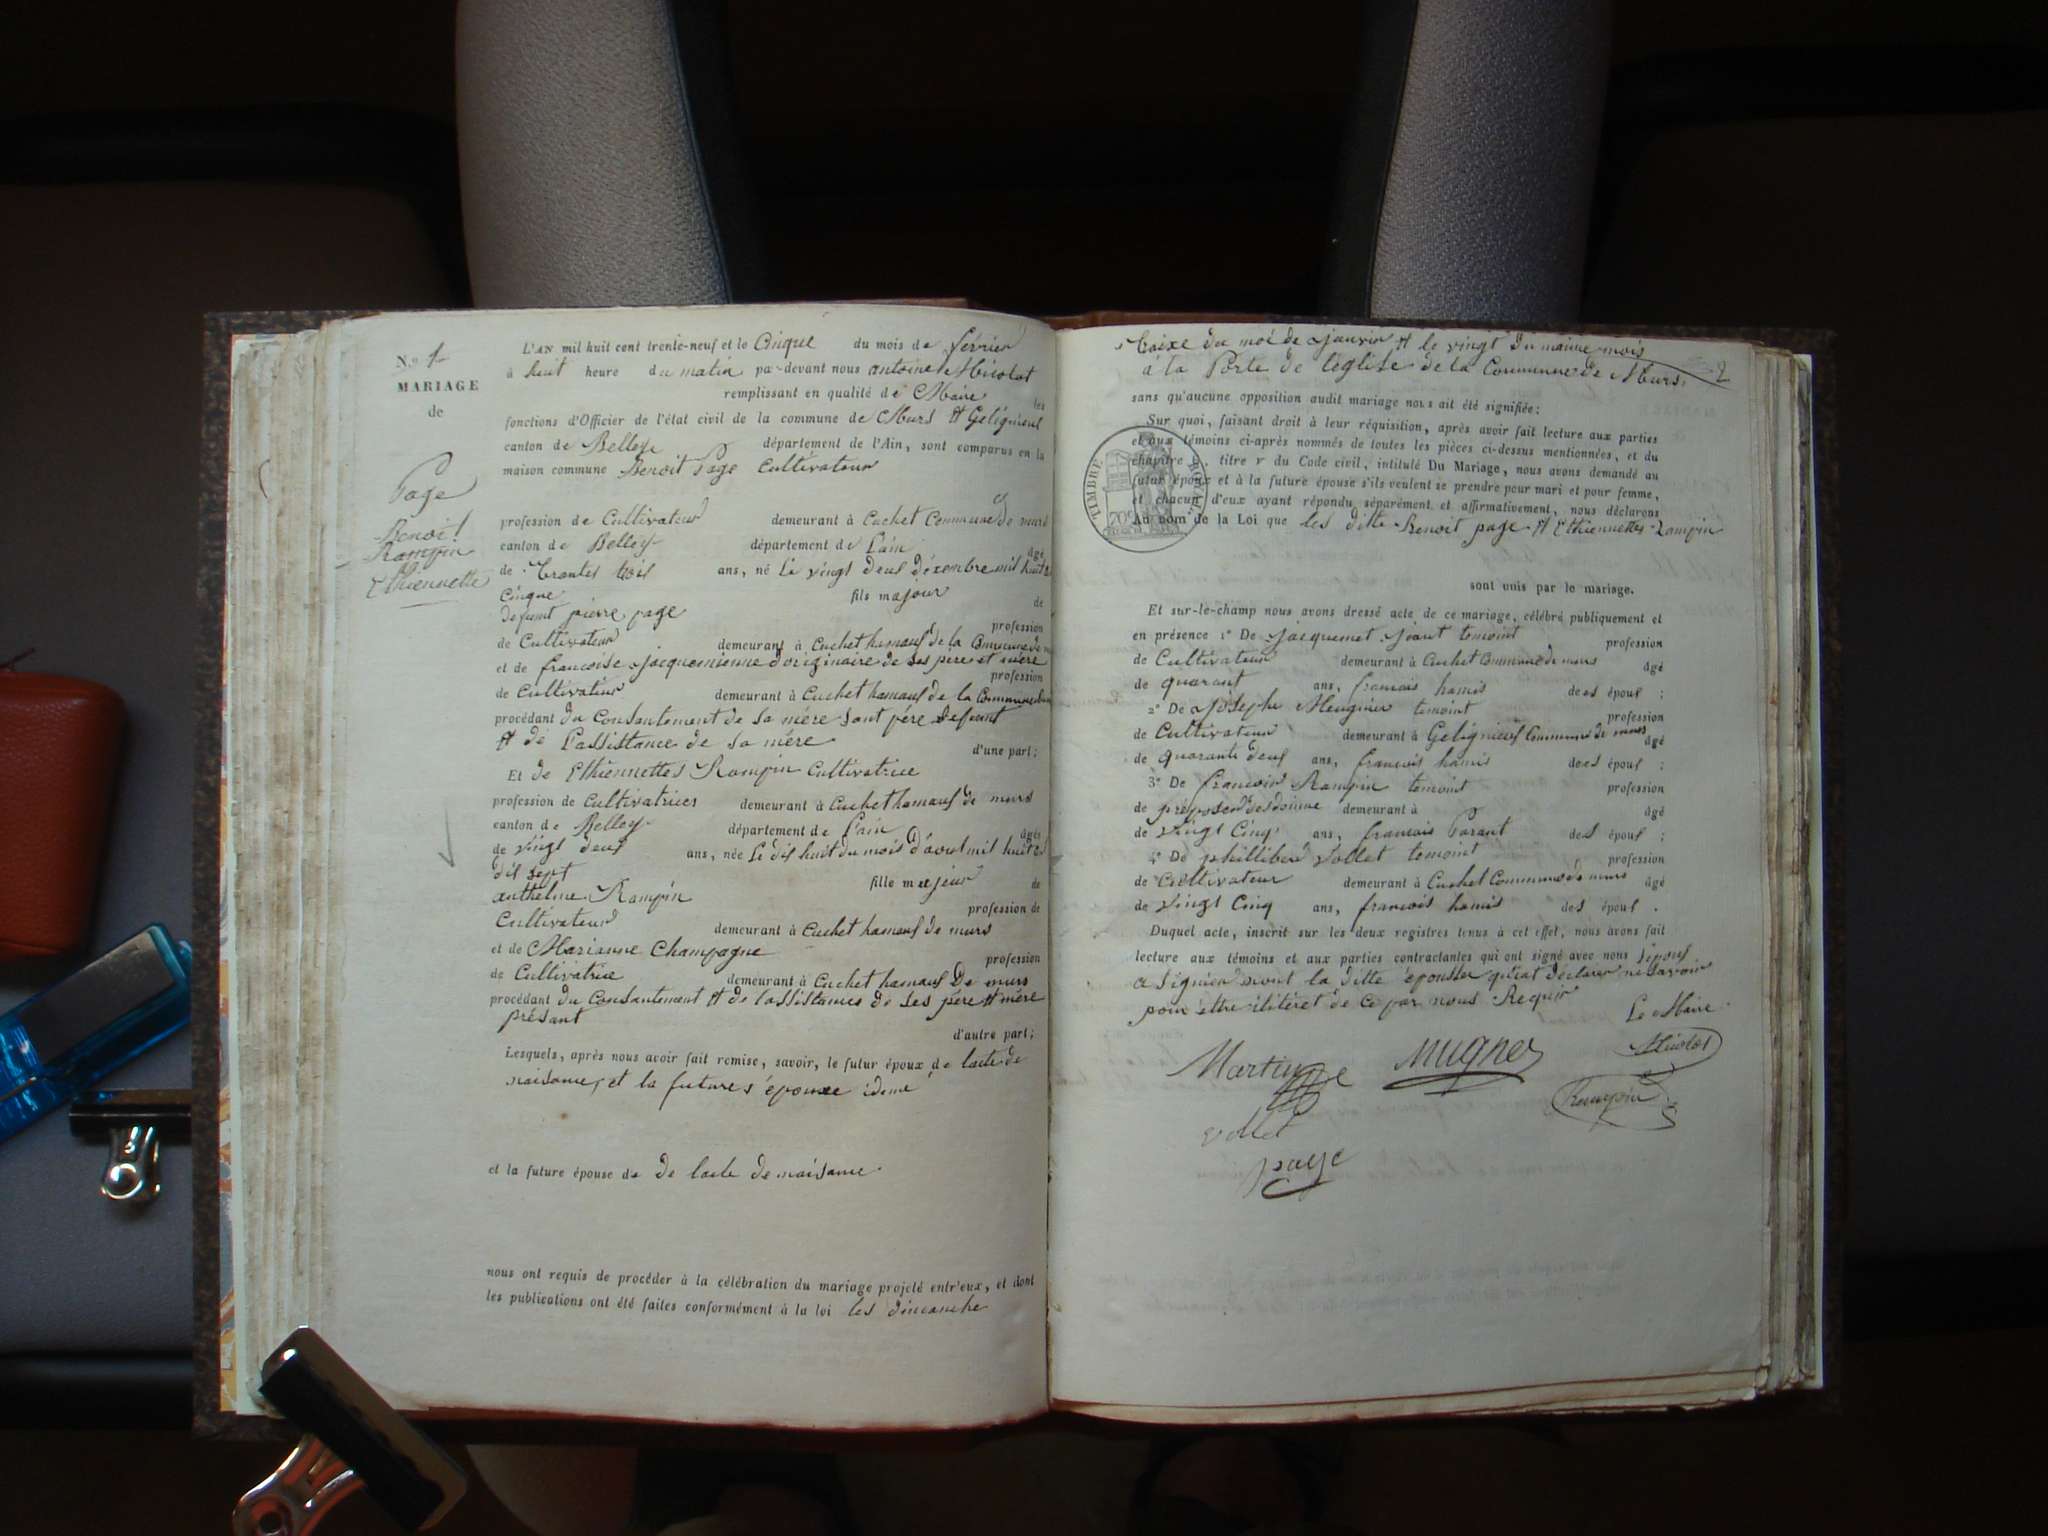 N.o 1
MARIAGE
de
Page
Benoit
Rampin
Ethiennette
L'AN mil huit cent trente-neuf et le Cinque du mois de février
à huit heure du matin par-devant nous antoine
remplissant en qualité de Maire les
fonctions d'Officier de l'état civil de la commune de Murs et Geligneul
canton de Belley département de l'Ain, sont comparus en la
maison commune Benoit Page Cultivateur
profession de Cultivateur demeurant à Cuchet Commune de murs
canton de Belley département de l'ain âgé
de trantes trois ans, né le vingt deus déxembre mil huit
Cinque fils majour de
defunt pierre page profession
de Cultivateur demeurant à Cuchet hamaus de la Commune de
et de francoise jacquemienne d'originaire de ses père et mère
profession
de Cultivateur demeurant à Cuchet hamaus de la Commune
procédant du Consantement de sa mére sont pére defunt
et de l'assistance de sa mére d'une part;
Et de Ethiennettes Rampin Cultivatrice
profession de Cultivatrices demeurant à Cuchet hamaus de murs
canton de Belley département de l'ain âgée
de vingt deus ans, née le dis huit du mois d'avout mil huit
dis sept
anthelme Rampin fille majeur de
Cultivateur profession de
demeurant à Cuchet hamaus de murs
et de Marianne Champagne profession
de Cultivatrice demeurant à Cuchet hamaus De murs
procédant du Consantement et de l'assistance de ses père et mère
présant
d'autre part;
Lesquels, après nous avoir fait remise, savoir, le futur époux de lacte de
naisance, et la futures épouxe
et la future épouse de de lacte de naisance
nous ont requis de procéder à la célébration du mariage projeté entr'eux, et dont
les publications ont été faites conformément à la loi les dimanche
du moi de janvier et le vingt du maime mois
à la Porte de l'eglise de la Commune de Murs. 2
sans qu'aucune opposition audit mariage nous ait été signifiée:
Sur quoi, faisant droit à leur réquisition, après avoir fait lecture aux parties
et aux témoins ci-après nommés de toutes les pièces ci-dessus mentionnées, et du
chapitre 6, titre v du Code civil, intitulé Du Mariage, nous avons demandé au
futur époux et à la future épouse s'ils veulent se prendre pour mari et pour femme,
et chacun d'eux ayant répondu séparément et affirmativement, nous déclarons
Au nom de la Loi que les ditte Benoit page et Ethiennettes Rampin
TIMBRE ROYAL
sont unis par le mariage.
Et sur-le-champ nous avons dressé acte de ce mariage, célébré publiquement et
en présence 1o De Jacquemet temoint profession
de Cultivateur demeurant à Cuchet Commune de murs âgé
de quarant ans, francois hamis des époul;
2o De Joseph Meugnier temoint profession
de Cultivateur demeurant à Geligneuf Commune de murs âgé
de quarante deus ans, francois hamis des époul;
3o De francois Rampin temoint profession
de préposer desdoinne demeurant à âgé
de vingt Cinq ans, francois Parant des époul;
4o De philliber vollet temoint profession
de Cultivateur demeurant à Cuchet Commune de murs âgé
de vingt Cinq ans, francois hamis des époul.
Duquel acte, inscrit sur les deux registres tenus à cet effet, nous avons fait
lecture aux témoins et aux parties contractantes qui ont signé avec nous
a signier la ditte épousse quiat déclarer ne savoir
pour éttre iliteret de Ce par nous Requir
Le Maire
mugner
Rampin
vollet
page